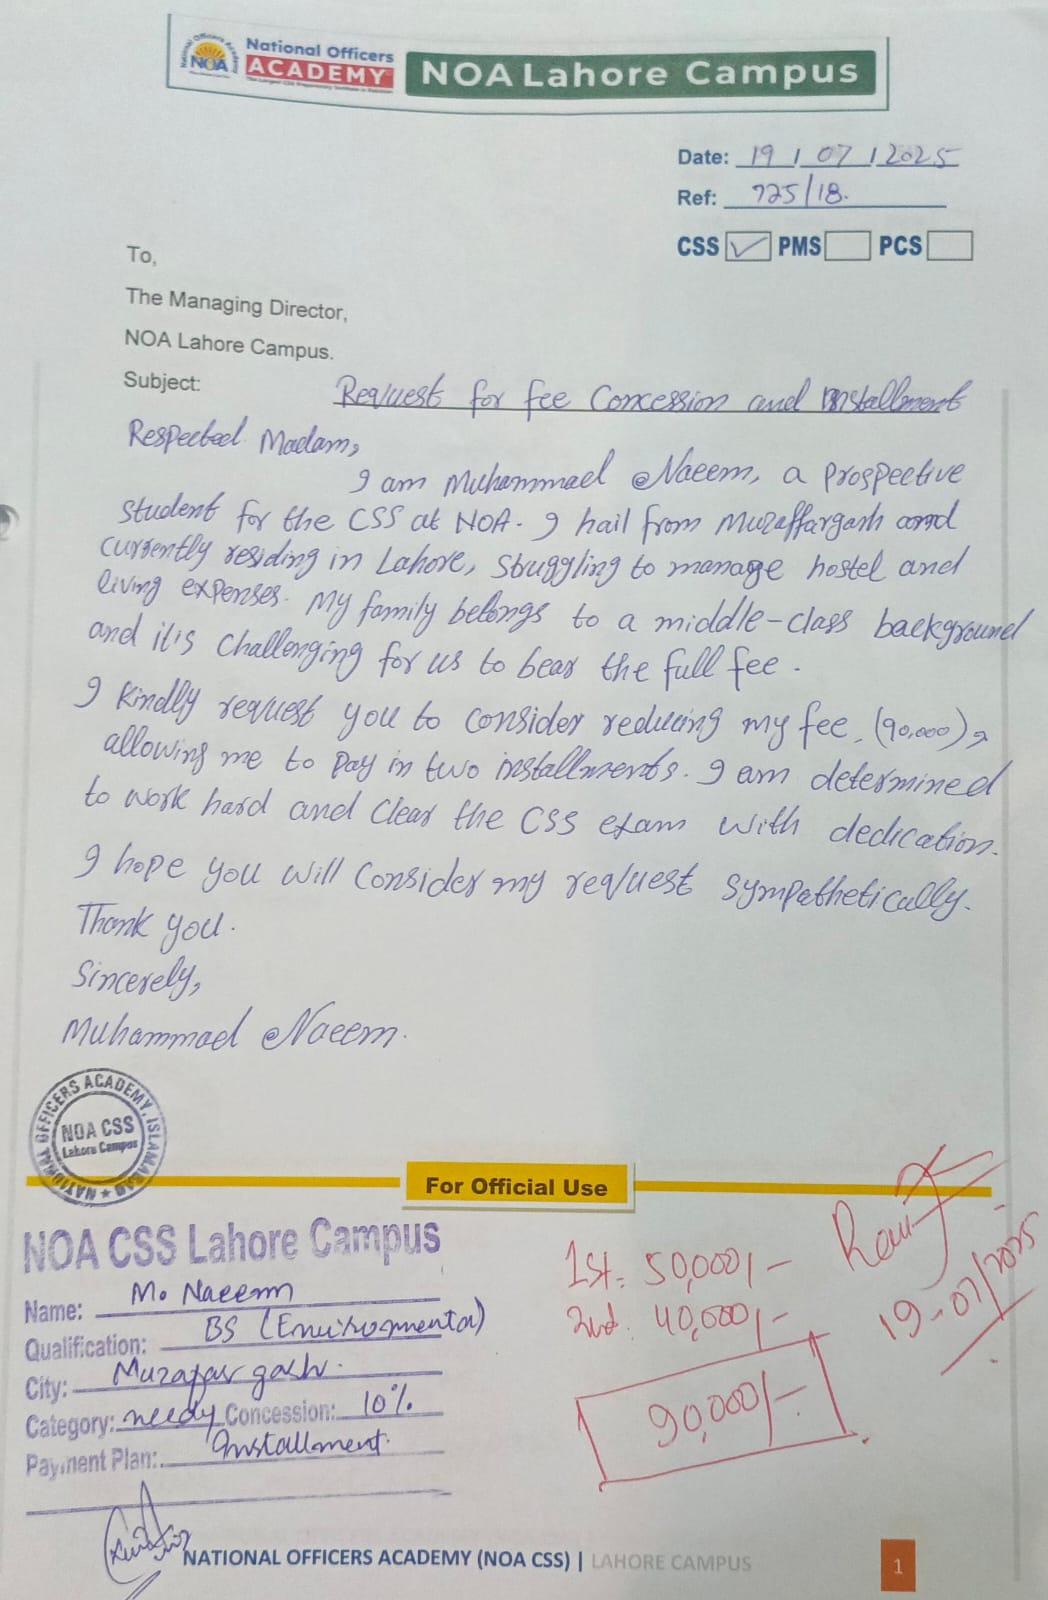 National Officers
NOA ACADEMY
NOA Lahore Campus
Date: 19 / 07 / 2025
Ref: 725/18.
CSS ✓ PMS PCS
To,
The Managing Director,
NOA Lahore Campus.
Subject: Request for fee Concession and installment
Respected Madam,
I am Muhammad Naeem, a prospective
student for the CSS at NOA. I hail from Muzaffargarh and
currently residing in Lahore, struggling to manage hostel and
living expenses. My family belongs to a middle-class background
and it is challenging for us to bear the full fee.
I kindly request you to consider reducing my fee (90,000),
allowing me to pay in two installments. I am determined
to work hard and clear the CSS exam with dedication.
I hope you will consider my request sympathetically.
Thank you.
Sincerely,
Muhammad Naeem.
NATIONAL OFFICERS ACADEMY, ISLAMABAD
NOA CSS
Lahore Campus
For Official Use
NOA CSS Lahore Campus
Name: M. Naeem
Qualification: BS (Environmental)
City: Muzafar garh.
Category: needy Concession: 10%
Payment Plan: Installment.
1st. 50,000/-
2nd. 40,000/-
90,000/-.
19-07/2025
NATIONAL OFFICERS ACADEMY (NOA CSS) | LAHORE CAMPUS
1